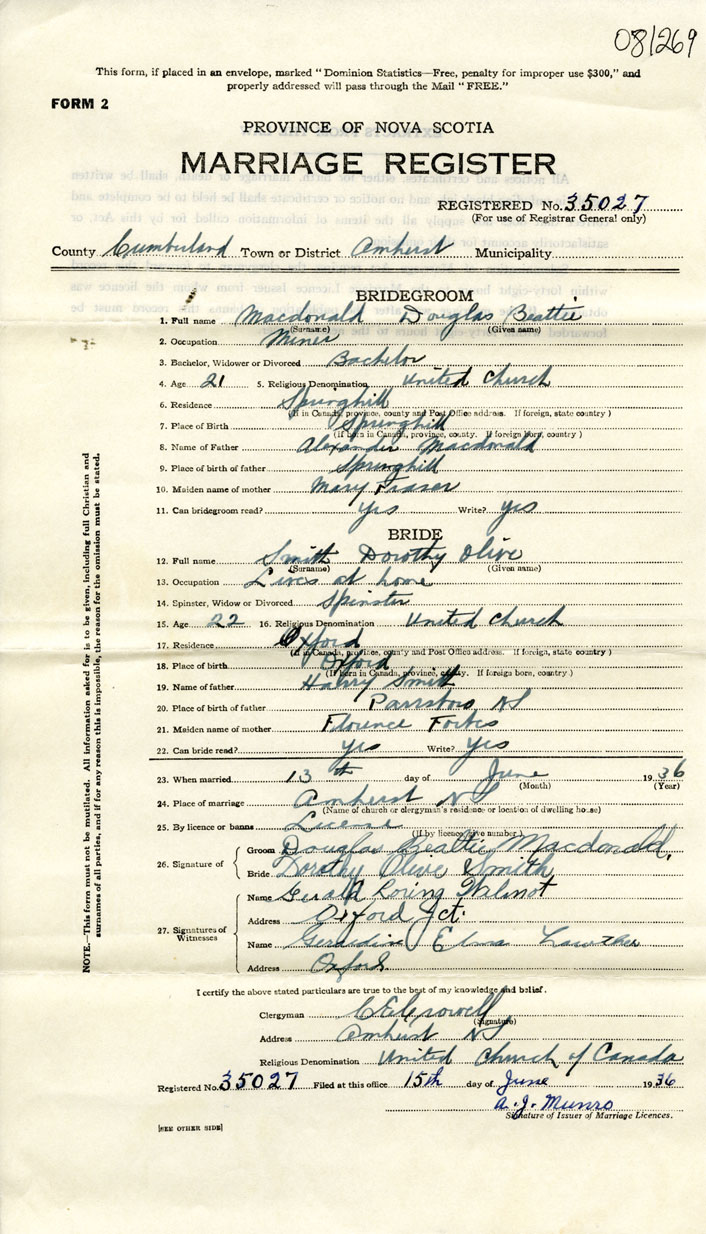 081269
This form, if placed in an envelope, marked "Dominion Statistics—Free, penalty for improper use $300," and
properly addressed will pass through the Mail "FREE."
FORM 2
PROVINCE OF NOVA SCOTIA
MARRIAGE REGISTER
REGISTERED No. 35027
(For use of Registrar General only)
County Cumberland Town or District Amherst Municipality
BRIDEGROOM
1. Full name Macdonald Douglas Beattie
(Surname) (Given name)
2. Occupation Miner
3. Bachelor, Widower or Divorced Bachelor
4. Age 21 5. Religious Denomination United Church
6. Residence Springhill
(If in Canada, province, county and Post Office address. If foreign, state country)
7. Place of Birth Springhill
(If born in Canada, province, county. If foreign born, country)
8. Name of Father Alexander Macdonald
9. Place of birth of father Springhill
10. Maiden name of mother Mary Fraser
11. Can bridegroom read? yes Write? yes
BRIDE
12. Full name Smith Dorothy Olive
(Surname) (Given name)
13. Occupation Lives at home
14. Spinster, Widow or Divorced Spinster
15. Age 22 16. Religious Denomination United Church
17. Residence Oxford
(If in Canada, province, county and Post Office address. If foreign, state country)
18. Place of birth Oxford
(If born in Canada, province, county. If foreign born, country)
19. Name of father Harry Smith
20. Place of birth of father Parrsboro NS
21. Maiden name of mother Florence Forbes
22. Can bride read? yes Write? yes
23. When married 13th day of June 1936
(Month) (Year)
24. Place of marriage Amherst NS
(Name of church or clergyman's residence or location of dwelling house)
25. By licence or banns License
(If by licence give number)
26. Signature of Groom Douglas Beattie Macdonald.
Bride Dorothy Olive Smith
27. Signatures of Witnesses
Name Gerald Loring Wilmot
Address Oxford Jct.
Name Geraldine Elma Lowther
Address Oxford.
I certify the above stated particulars are true to the best of my knowledge and belief.
Clergyman C E Crowell
(Signature)
Address Amherst NS
Religious Denomination United Church of Canada
Registered No. 35027 Filed at this office 15th day of June 1936
A. J. Munro
Signature of Issuer of Marriage Licences.
[SEE OTHER SIDE]
NOTE.—This form must not be mutilated. All information asked for is to be given, including full Christian and
surnames of all parties, and if for any reason this is impossible, the reason for the omission must be stated.